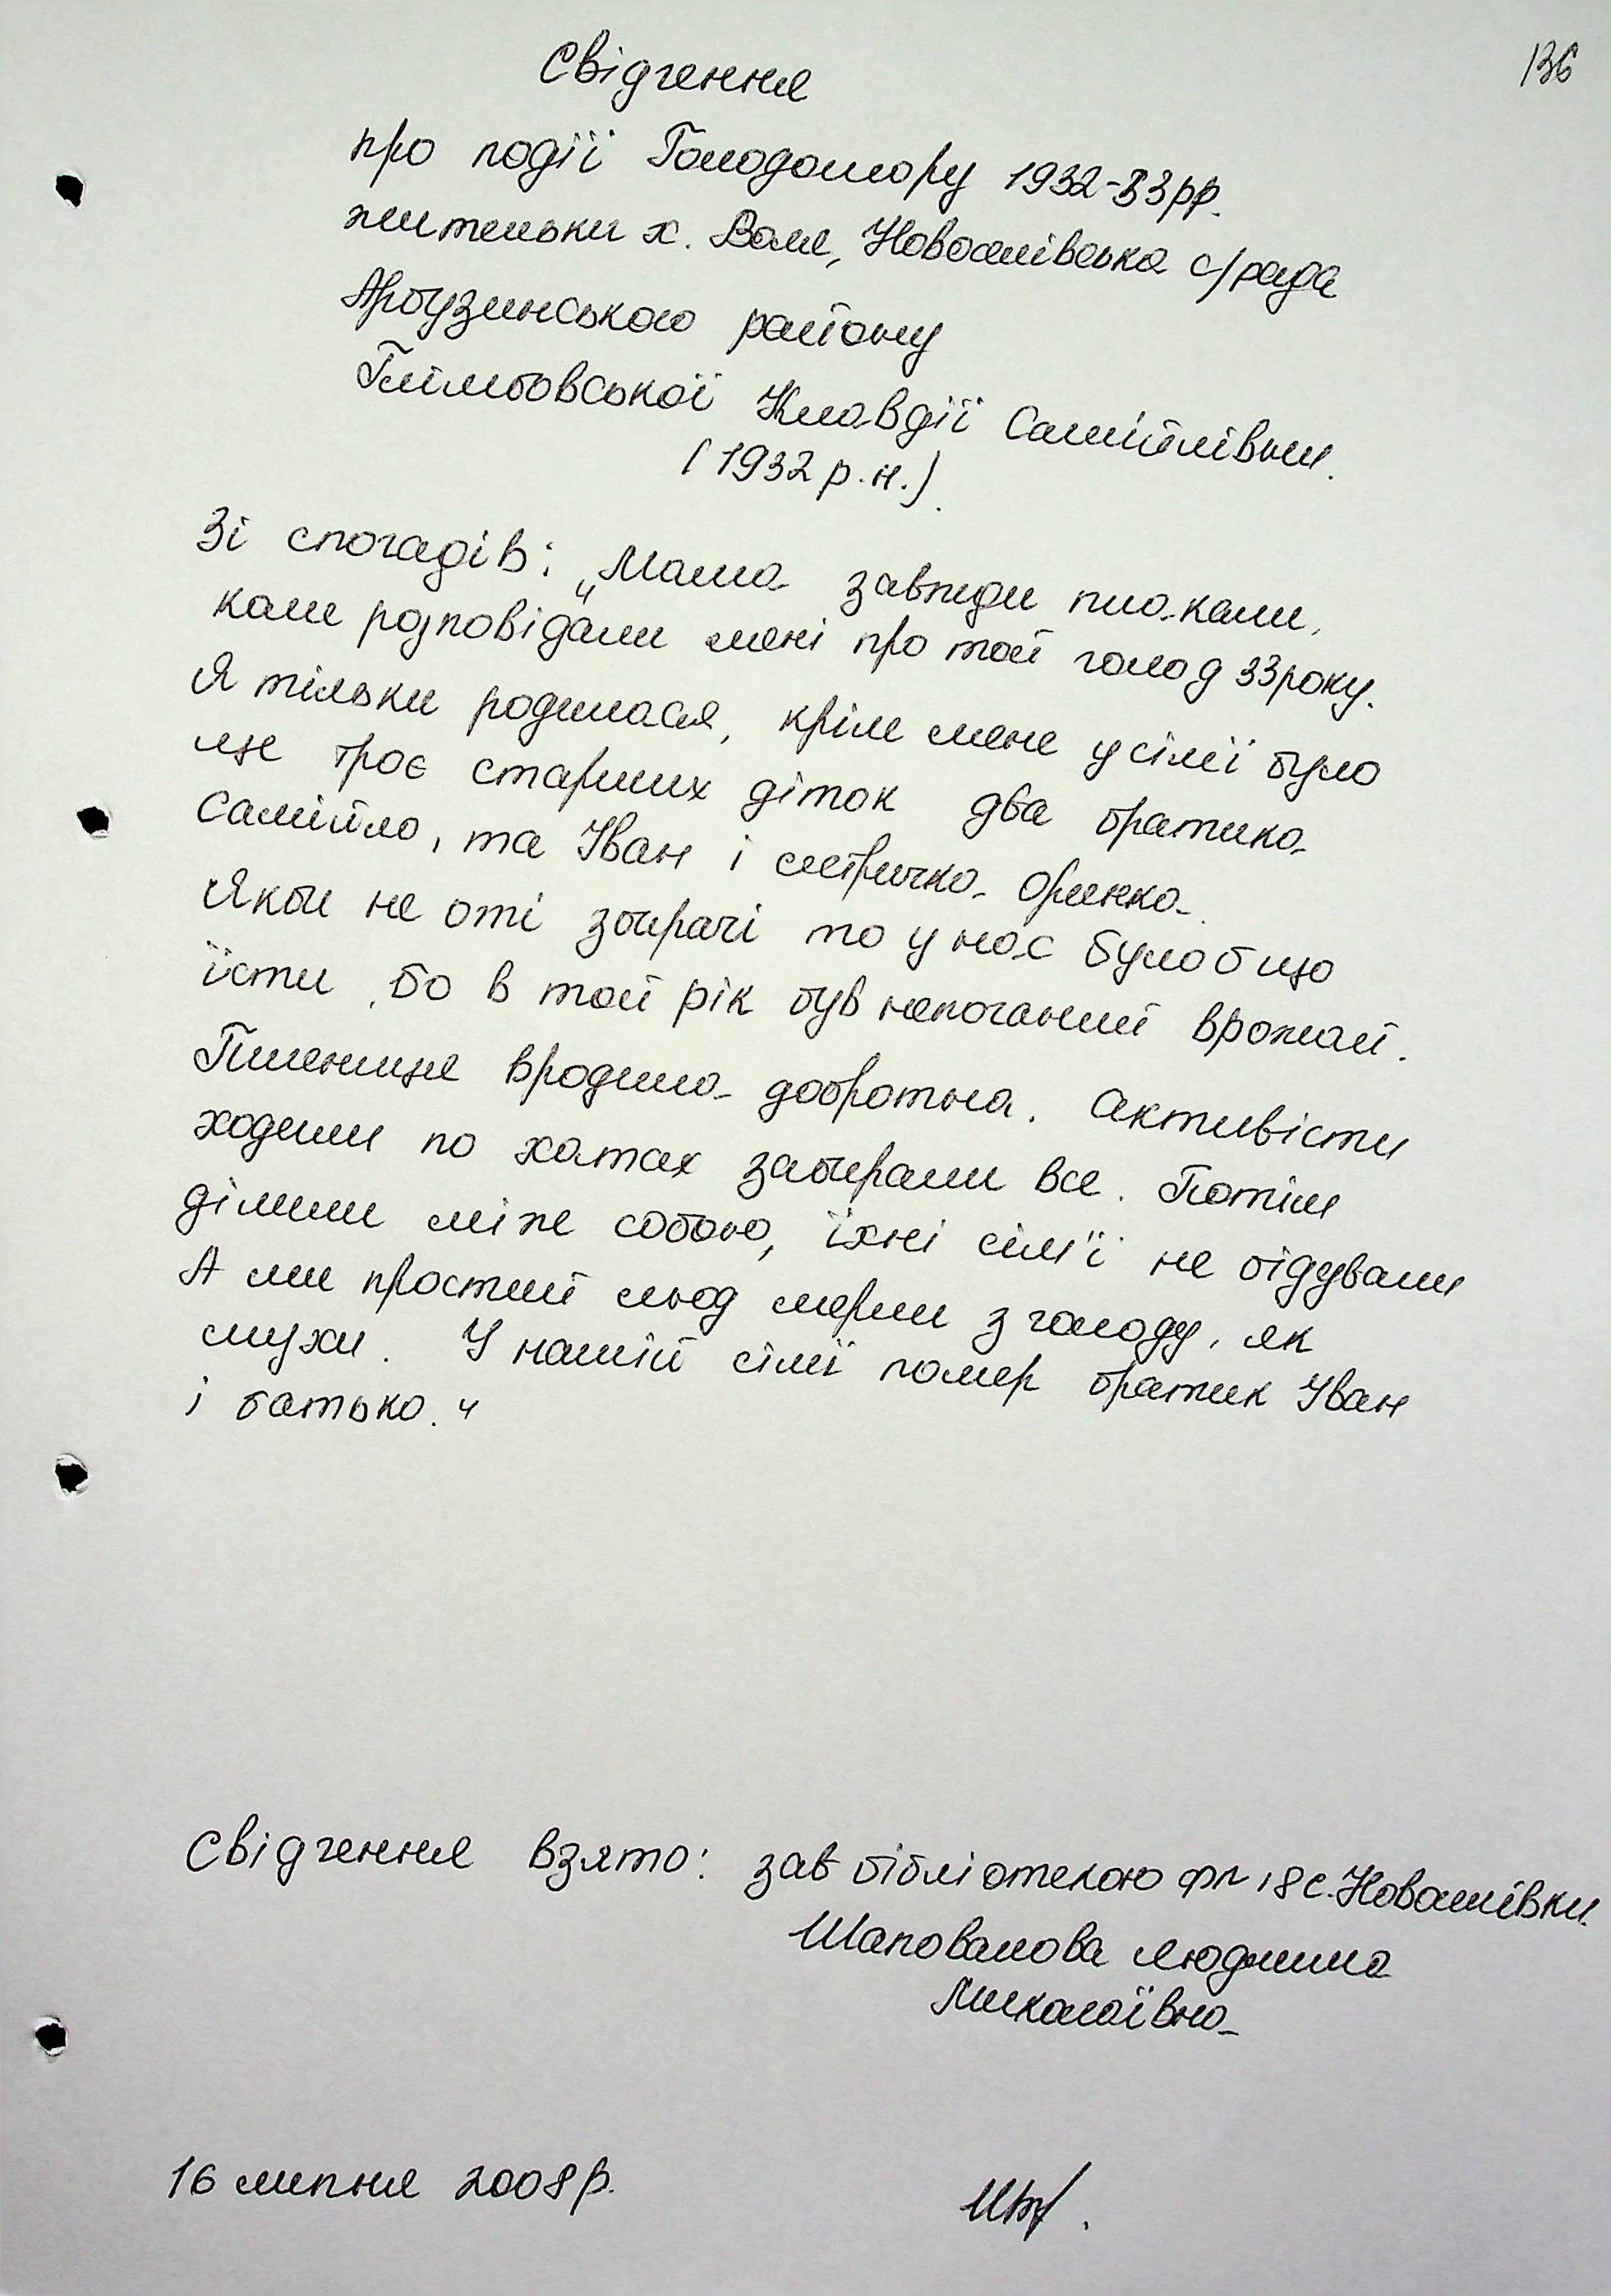 136
Свідчення
про події Голодомору 1932-33рр.
жительки х. Воля, Новоселівська с/рада
Арбузинського району
Глімбовської Клавдії Самійлівни.
(1932 р.н.).
Зі спогадів: „Мама завжди плакали,
коли розповідали мені про той голод 33року.
Я тільки родилася, крім мене у сімї було
ще троє старших діток два братика
Самійло, та Іван і сестричка Оринка.
Якби не оті збирачі то у нас було б що
їсти, бо в той рік був непоганий врожай.
Пшениця вродила добротна. Активісти
ходили по хатах забирали все. Потім
ділили між собою, їхні сім'ї не бідували
А ми простий люд мерли з голоду, як
мухи. У нашій сімї помер братик Іван
і батько."
Свідчення взято: зав бібліотекою фл 18 с.
Шаповалова Людмила
Миколаївна
16 липня 2008р.